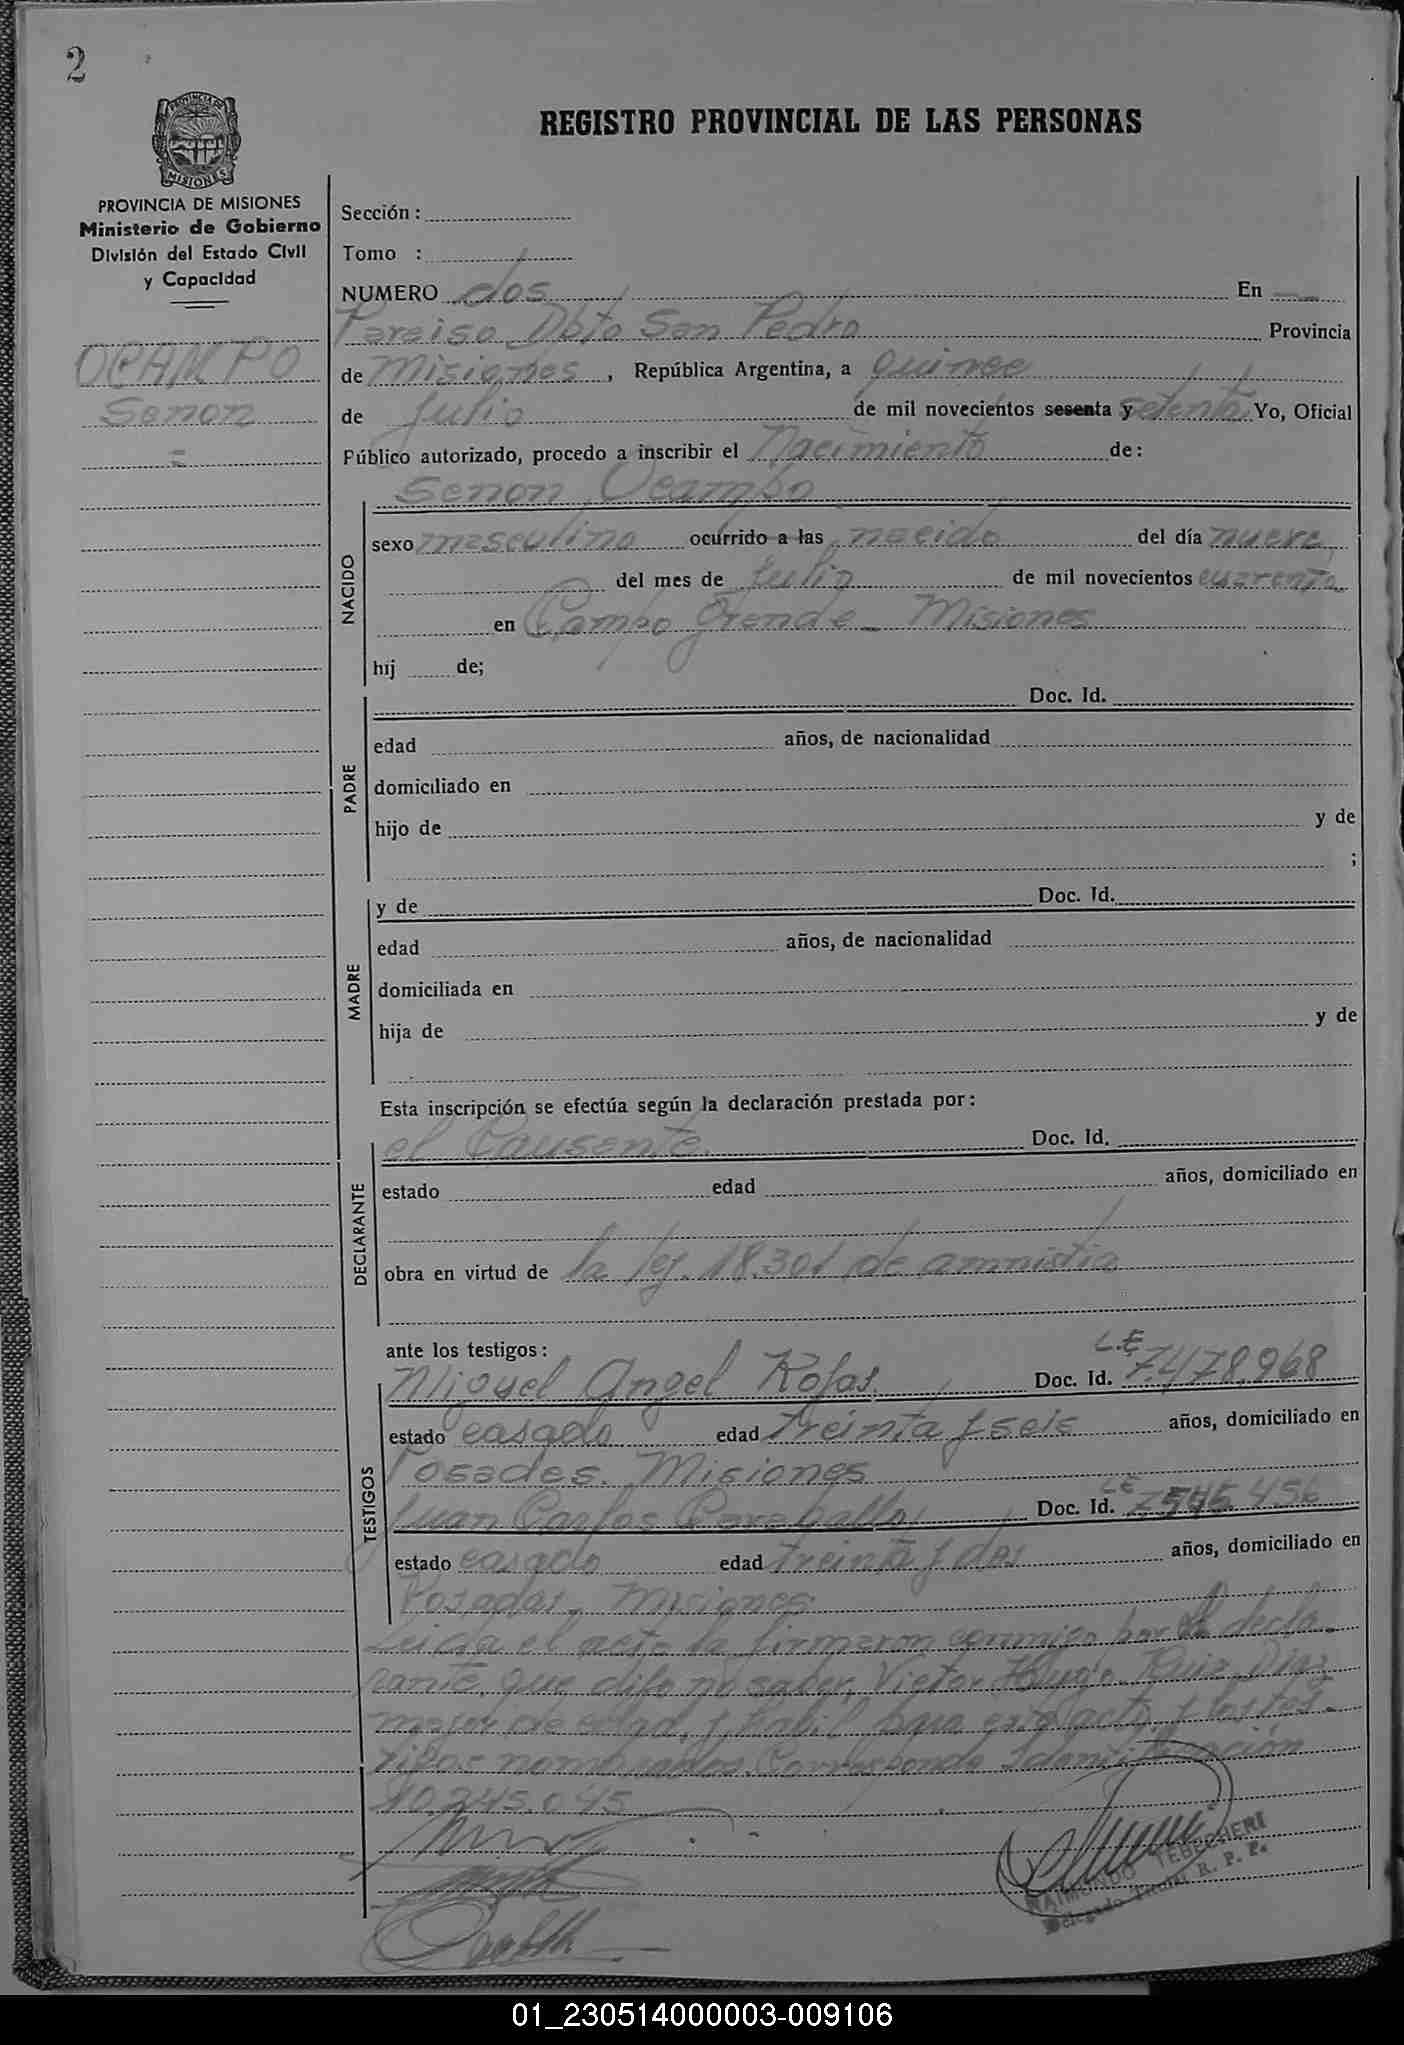 2
REGISTRO PROVINCIAL DE LAS PERSONAS
PROVINCIA DE MISIONES
Ministerio de Gobierno
División del Estado Civil
y Capacidad
OCAMPO
Senon
=
Sección :
Tomo :
NUMERO dos En
Paraiso Dpto San Pedro Provincia
de Misiones , República Argentina, a quince
de Julio de mil novecientos sesenta y setenta Yo, Oficial
Público autorizado, procedo a inscribir el Nacimiento de:
Senon Ocampo
NACIDO
sexo masculino ocurrido a las nacido del día nueve
del mes de Julio de mil novecientos cuarenta
en Campo Grande - Misiones
hij de;
PADRE
Doc. Id.
edad años, de nacionalidad
domiciliado en
hijo de y de
;
MADRE
y de Doc. Id.
edad años, de nacionalidad
domiciliada en
hija de y de
Esta inscripción se efectúa según la declaración prestada por:
DECLARANTE
el Causante. Doc. Id.
estado edad años, domiciliado en
obra en virtud de la ley 18.301 de amnistia
ante los testigos:
TESTIGOS
Miguel Angel Rojas Doc. Id. L.E 7.478.968
estado casado edad treinta y seis años, domiciliado en
Posadas. Misiones
Juan Carlos Caraballo Doc. Id. LE 7.545.456
estado casado edad treinta y dos años, domiciliado en
Posadas, Misiones
Leida el acta la firmaron conmigo por el decla-
rante, que dijo no saber, Victor Hugo Ruiz Diaz
mayor de edad y habil para este acto y los tes-
tigos nombrados. Corresponde Identificación
10.245.045
RAIMUNDO TEBECHERI
Delegado Titular R. P. P.
01_230514000003-009106